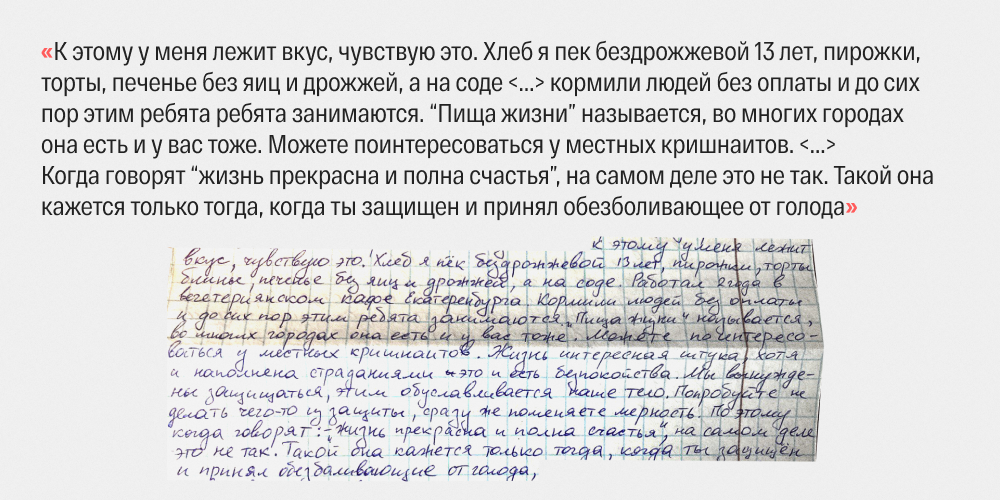 «К этому у меня лежит вкус, чувствую это. Хлеб я пек бездрожжевой 13 лет, пирожки,
торты, печенье без яиц и дрожжей, а на соде <...> кормили людей без оплаты и до сих
пор этим ребята ребята занимаются. “Пища жизни” называется, во многих городах
она есть и у вас тоже. Можете поинтересоваться у местных кришнаитов. <...>
Когда говорят “жизнь прекрасна и полна счастья”, на самом деле это не так. Такой она
кажется только тогда, когда ты защищен и принял обезболивающее от голода»
к этому у меня лежит
вкус, чувствую это. Хлеб я пёк бездрожжевой 13 лет, пирожки, торты
блины, печенье без яиц и дрожжей, а на соде. Работал 2 года в
вегетериянском кафе Екатеренбурга. Кормили людей без оплаты
и до сих пор этим ребята занимаются. „Пища жизни" называется,
во многих городах она есть и у вас тоже. Можете поинтересо-
ваться у местных кришнаитов. Жизнь интересная штука хотя
и наполнена страданиями это и есть безпокойства. Мы вынужде-
ны защищаться, этим обуславливается наше тело. Попробуйте не
делать чего-то из защиты, сразу же поменяете мерность. По этому
когда говорят: - „Жизнь прекрасна и полна счастья", на самом деле
это не так. Такой она кажется только тогда, когда ты защищён
и принял обезбаливающие от голода,